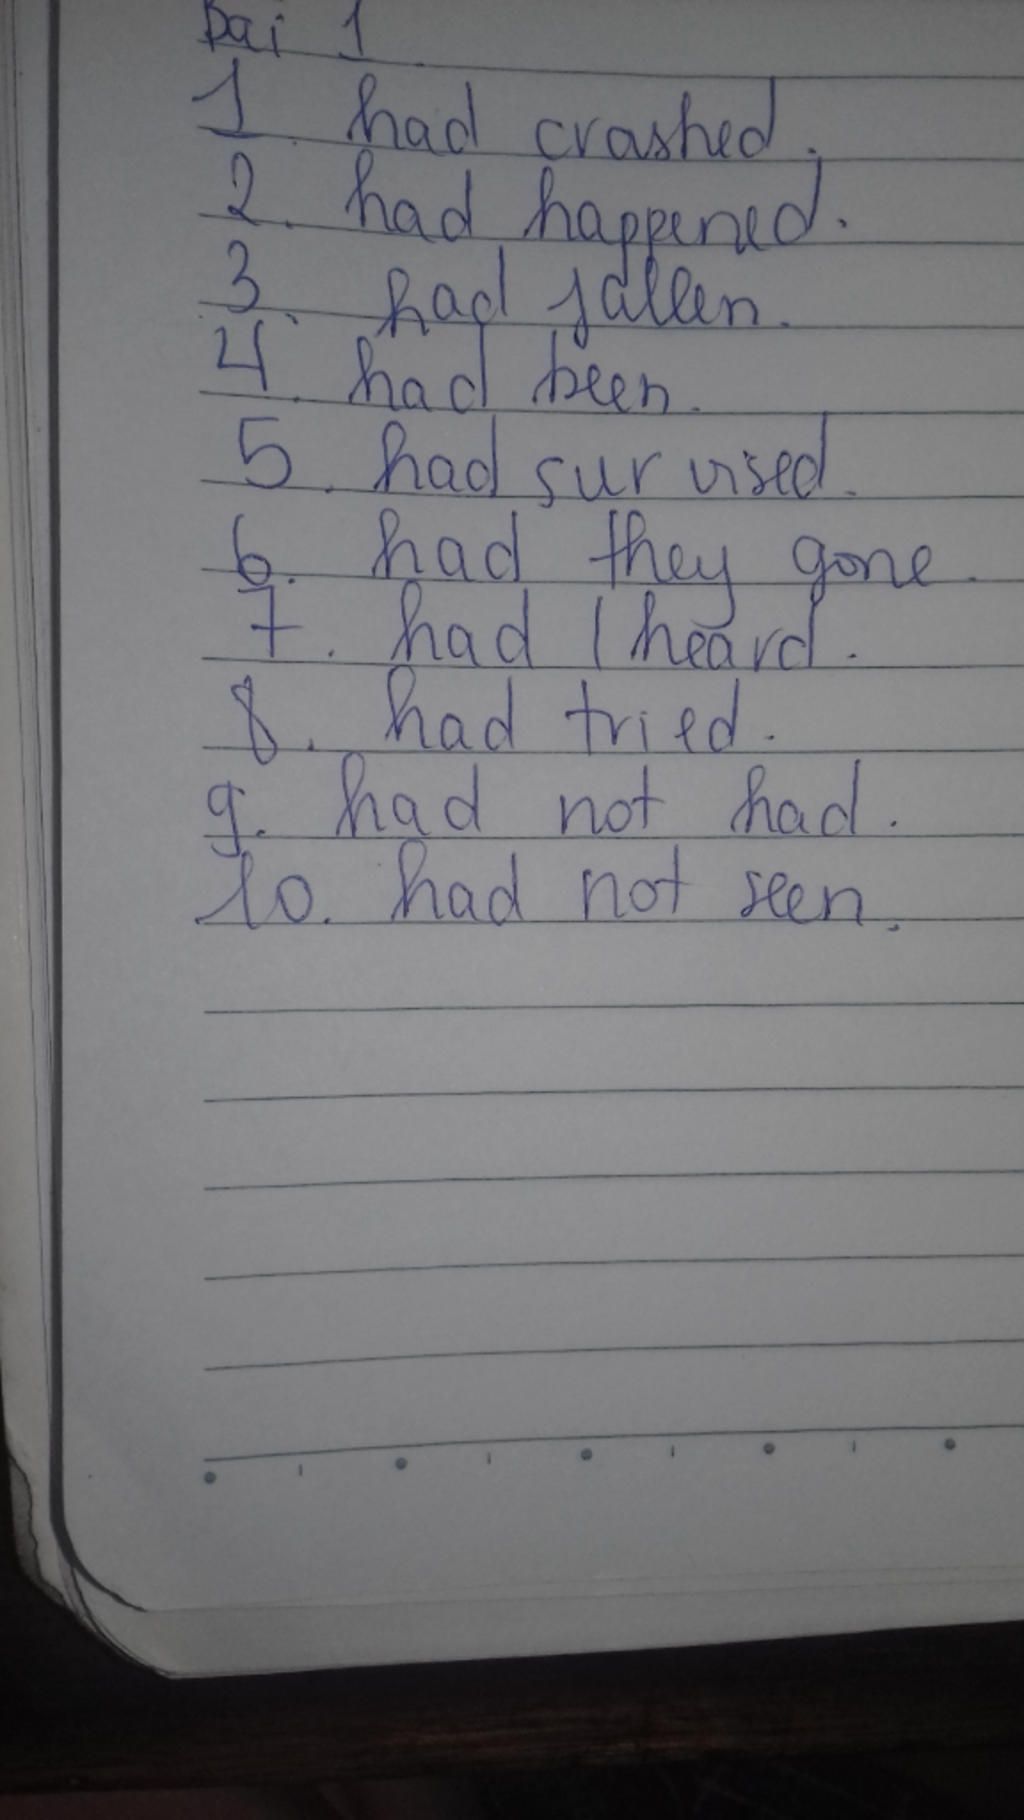 Bai 1
1. had crashed.
2. had happened.
3. had fallen.
4. had been.
5. had survised.
6. had they gone.
7. had I heard.
8. had tried.
9. had not had.
10. had not seen.